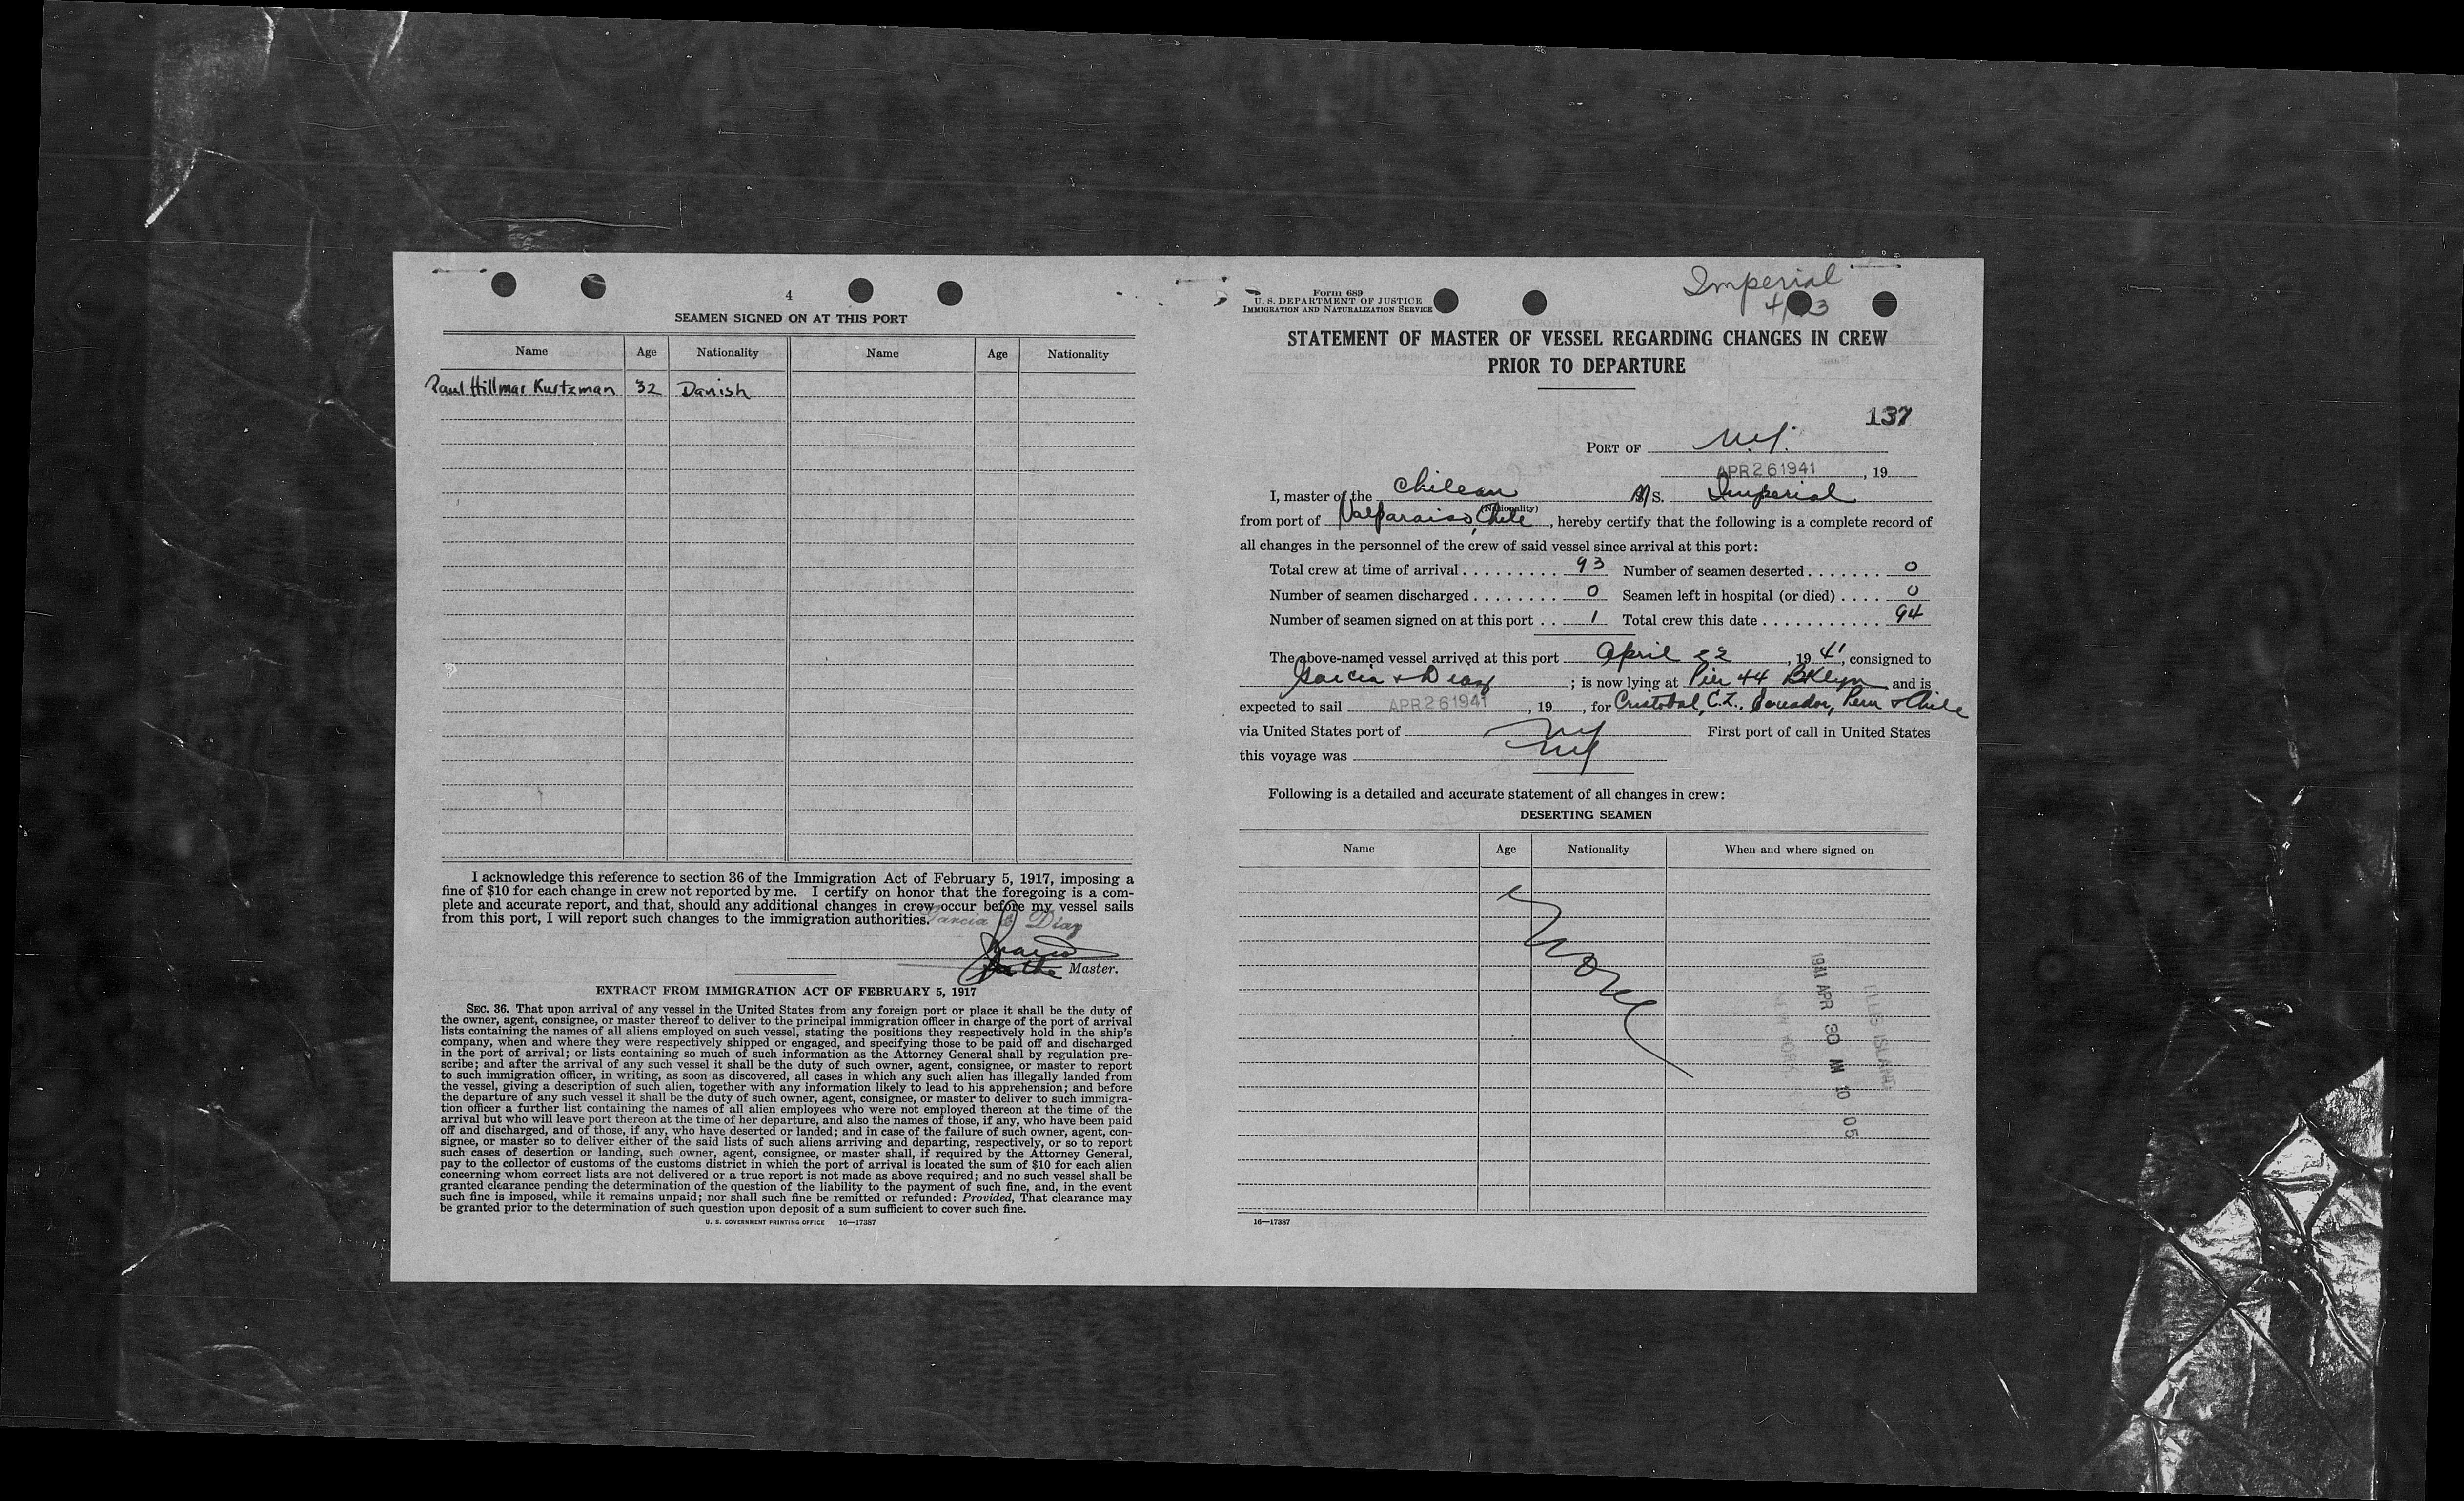 4
SEAMEN SIGNED ON AT THIS PORT
Name Age Nationality Name Age Nationality
Paul Hillmar Kurtzman 32 Danish
I acknowledge this reference to section 36 of the Immigration Act of February 5, 1917, imposing a
fine of $10 for each change in crew not reported by me. I certify on honor that the foregoing is a com-
plete and accurate report, and that, should any additional changes in crew occur before my vessel sails
from this port, I will report such changes to the immigration authorities.
Garcia & Diaz
for the Master.
EXTRACT FROM IMMIGRATION ACT OF FEBRUARY 5, 1917
SEC. 36. That upon arrival of any vessel in the United States from any foreign port or place it shall be the duty of
the owner, agent, consignee, or master thereof to deliver to the principal immigration officer in charge of the port of arrival
lists containing the names of all aliens employed on such vessel, stating the positions they respectively hold in the ship's
company, when and where they were respectively shipped or engaged, and specifying those to be paid off and discharged
in the port of arrival; or lists containing so much of such information as the Attorney General shall by regulation pre-
scribe; and after the arrival of any such vessel it shall be the duty of such owner, agent, consignee, or master to report
to such immigration officer, in writing, as soon as discovered, all cases in which any such alien has illegally landed from
the vessel, giving a description of such alien, together with any information likely to lead to his apprehension; and before
the departure of any such vessel it shall be the duty of such owner, agent, consignee, or master to deliver to such immigra-
tion officer a further list containing the names of all alien employees who were not employed thereon at the time of the
arrival but who will leave port thereon at the time of her departure, and also the names of those, if any, who have been paid
off and discharged, and of those, if any, who have deserted or landed; and in case of the failure of such owner, agent, con-
signee, or master so to deliver either of the said lists of such aliens arriving and departing, respectively, or so to report
such cases of desertion or landing, such owner, agent, consignee, or master shall, if required by the Attorney General,
pay to the collector of customs of the customs district in which the port of arrival is located the sum of $10 for each alien
concerning whom correct lists are not delivered or a true report is not made as above required; and no such vessel shall be
granted clearance pending the determination of the question of the liability to the payment of such fine, and, in the event
such fine is imposed, while it remains unpaid; nor shall such fine be remitted or refunded: Provided, That clearance may
be granted prior to the determination of such question upon deposit of a sum sufficient to cover such fine.
U. S. GOVERNMENT PRINTING OFFICE 16—17387
Imperial
Form 689
U. S. DEPARTMENT OF JUSTICE
IMMIGRATION AND NATURALIZATION SERVICE
STATEMENT OF MASTER OF VESSEL REGARDING CHANGES IN CREW
PRIOR TO DEPARTURE
137
PORT OF N.Y.
APR 26 1941, 19
I, master of the Chilean M/S. Imperial
(Nationality)
from port of Valparaiso, Chile, hereby certify that the following is a complete record of
all changes in the personnel of the crew of said vessel since arrival at this port:
Total crew at time of arrival 93 Number of seamen deserted 0
Number of seamen discharged 0 Seamen left in hospital (or died) 0
Number of seamen signed on at this port 1 Total crew this date 94
The above-named vessel arrived at this port April 22, 1941, consigned to
Garcia & Diaz; is now lying at Pier 44 BKlyn and is
expected to sail APR 26 1941, 19, for Cristobal, C.Z., Ecuador, Peru & Chile
via United States port of NY First port of call in United States
this voyage was NY
Following is a detailed and accurate statement of all changes in crew:
DESERTING SEAMEN
Name Age Nationality When and where signed on
None
ELLIS ISLAND
1941 APR 30 AM 10 05
NEW YORK
16—17387